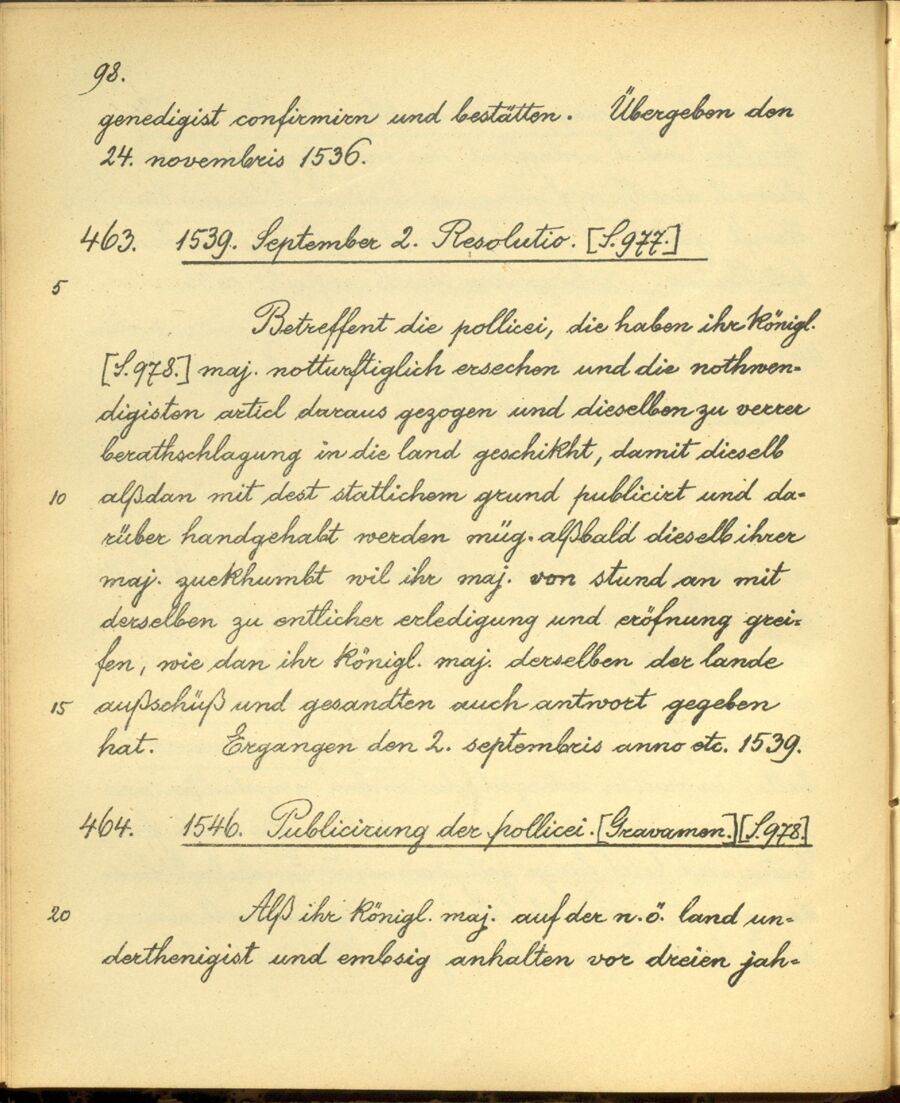 98.
genedigist confirmirn und bestätten. Übergeben den
24. novembris 1536.
463. 1539. September 2. Resolutio. [S.977.]
5
Betreffent die pollicei, die haben ihr Königl.
[S.978.] maj. notturftiglich ersechen und die nothwen=
digisten articl daraus gezogen und dieselben zu verrer
berathschlagung in die land geschikht, damit dieselb
10 alßdan mit dest statlichem grund publicirt und da=
rüber handgehabt werden müg. alßbald dieselb ihrer
maj. zuekhumbt wil ihr maj. von stund an mit
derselben zu entlicher erledigung und eröfnung grei=
fen, wie dan ihr Königl. maj. derselben der lande
15 außschüß und gesandten auch antwort gegeben
hat. Ergangen den 2. septembris anno etc. 1539.
464. 1546. Publicirung der pollicei. [Gravamen.] [S.978.]
20 Alß ihr Königl. maj. auf der n.ö. land un=
derthenigist und embsig anhalten vor dreien jah=